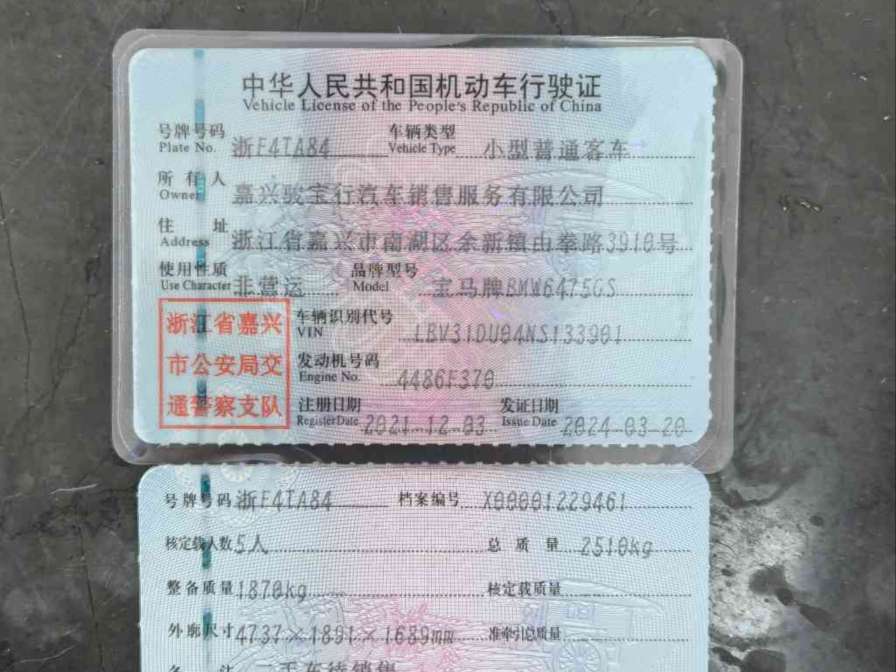 中华人民共和国机动车行驶证
Vehicle License of the People's Republic of China
号牌号码 浙F4TA84 车辆类型 小型普通客车
Plate No. Vehicle Type
所有人 嘉兴骏宝行汽车销售服务有限公司
Owner
住址 浙江省嘉兴市南湖区余新镇由拳路3910号
Address
使用性质 非营运 品牌型号 宝马牌BMW6475GS
Use Character Model
浙江省嘉兴
市公安局交
通警察支队
车辆识别代号 LBV31DU04NS133901
VIN
发动机号码 4486F370
Engine No.
注册日期 2021-12-03 发证日期 2024-03-20
Register Date Issue Date
号牌号码 浙F4TA84 档案编号 X00001229461
核定载人数 5人 总质量 2510kg
整备质量 1870kg 核定载质量
外廓尺寸 4737×1891×1689mm 准牵引总质量
备注 二手车待销售